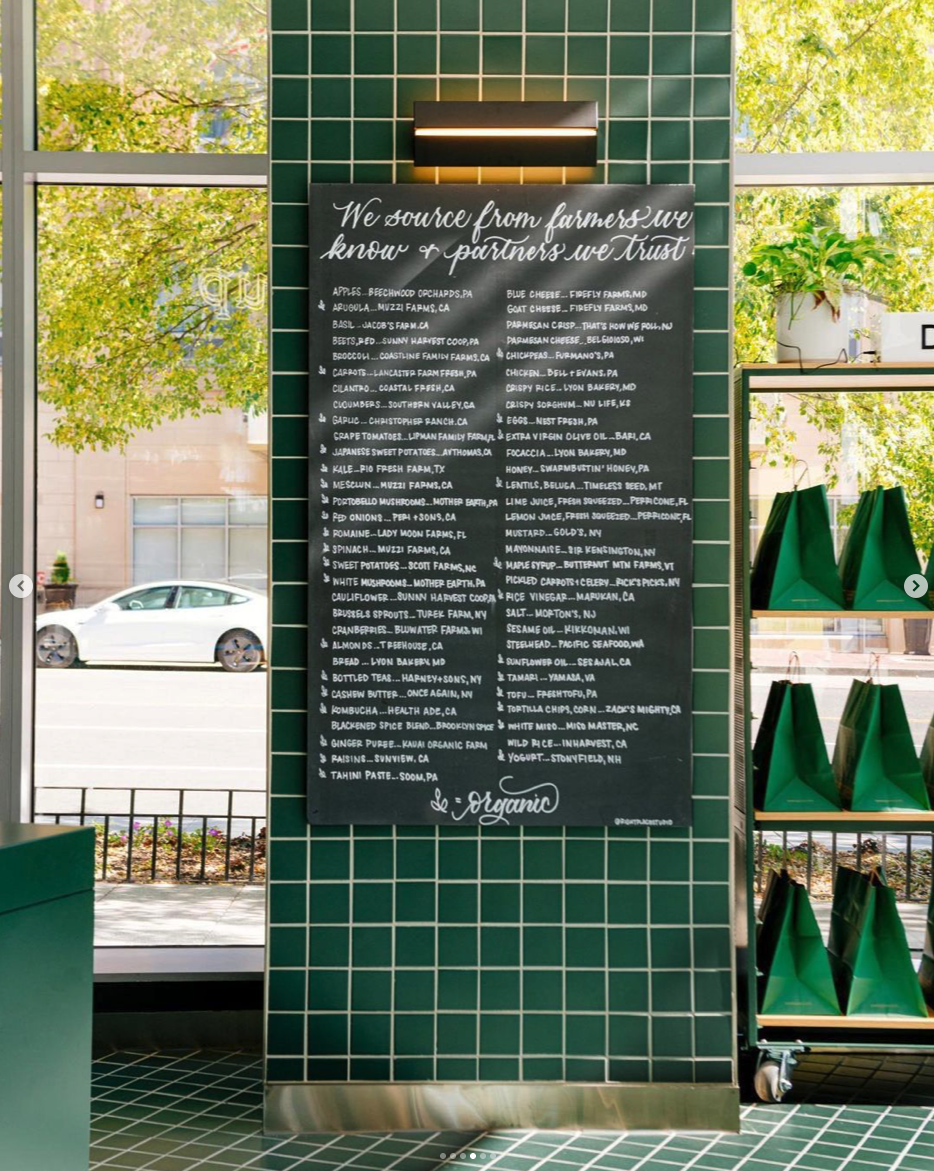 We source from farmers we
know + partners we trust
APPLES...BEECHWOOD ORCHARDS, PA
ARUGULA...MUZZI FARMS, CA
BASIL...JACOB'S FARM, CA
BEETS, RED...SUNNY HARVEST COOP, PA
BROCCOLI...COASTLINE FAMILY FARMS, CA
CARROTS...LANCASTER FARM FRESH, PA
CILANTRO...COASTAL FRESH, CA
CUCUMBERS...SOUTHERN VALLEY, GA
GARLIC...CHRISTOPHER RANCH, CA
GRAPE TOMATOES...LIPMAN FAMILY FARM, FL
JAPANESE SWEET POTATOES...AV THOMAS, CA
KALE...RIO FRESH FARM, TX
MESCLUN...MUZZI FARMS, CA
PORTOBELLO MUSHROOMS...MOTHER EARTH, PA
RED ONIONS...PERI + SONS, CA
ROMAINE...LADY MOON FARMS, FL
SPINACH...MUZZI FARMS, CA
SWEET POTATOES...SCOTT FARMS, NC
WHITE MUSHROOMS...MOTHER EARTH, PA
CAULIFLOWER...SUNNY HARVEST COOP, PA
BRUSSELS SPROUTS...TUREK FARM, NY
CRANBERRIES...BLUWATER FARMS, WI
ALMONDS...TREEHOUSE, CA
BREAD...LYON BAKERY, MD
BOTTLED TEAS...HARNEY + SONS, NY
CASHEW BUTTER...ONCE AGAIN, NY
KOMBUCHA...HEALTH ADE, CA
BLACKENED SPICE BLEND...BROOKLYN SPICE
GINGER PUREE...KAUAI ORGANIC FARM
RAISINS...SUNVIEW, CA
TAHINI PASTE...SOOM, PA
BLUE CHEESE...FIREFLY FARMS, MD
GOAT CHEESE...FIREFLY FARMS, MD
PARMESAN CRISP...THAT'S HOW WE ROLL, NJ
PARMESAN CHEESE...BELGIOIOSO, WI
CHICKPEAS...FURMANO'S, PA
CHICKEN...BELL + EVANS, PA
CRISPY RICE...LYON BAKERY, MD
CRISPY SORGHUM...NU LIFE, KS
EGGS...NEST FRESH, PA
EXTRA VIRGIN OLIVE OIL...BARI, CA
FOCACCIA...LYON BAKERY, MD
HONEY...SWARMBUSTIN' HONEY, PA
LENTILS, BELUGA...TIMELESS SEED, MT
LIME JUICE, FRESH SQUEEZED...PERRICONE, FL
LEMON JUICE, FRESH SQUEEZED...PERRICONE, FL
MUSTARD...GOLD'S, NY
MAYONNAISE...SIR KENSINGTON, NY
MAPLE SYRUP...BUTTERNUT MTN FARMS, VT
PICKLED CARROTS + CELERY...RICK'S PICKS, NY
RICE VINEGAR...MARUKAN, CA
SALT...MORTON'S, NJ
SESAME OIL...KIKKOMAN, WI
STEELHEAD...PACIFIC SEAFOOD, WA
SUNFLOWER OIL...SESAJAL, CA
TAMARI...YAMASA, VA
TOFU...FRESHTOFU, PA
TORTILLA CHIPS, CORN...ZACK'S MIGHTY, CA
WHITE MISO...MISO MASTER, NC
WILD RICE...INHARVEST, CA
YOGURT...STONYFIELD, NH
= organic
@RIGHTPLACESTUDIO
D